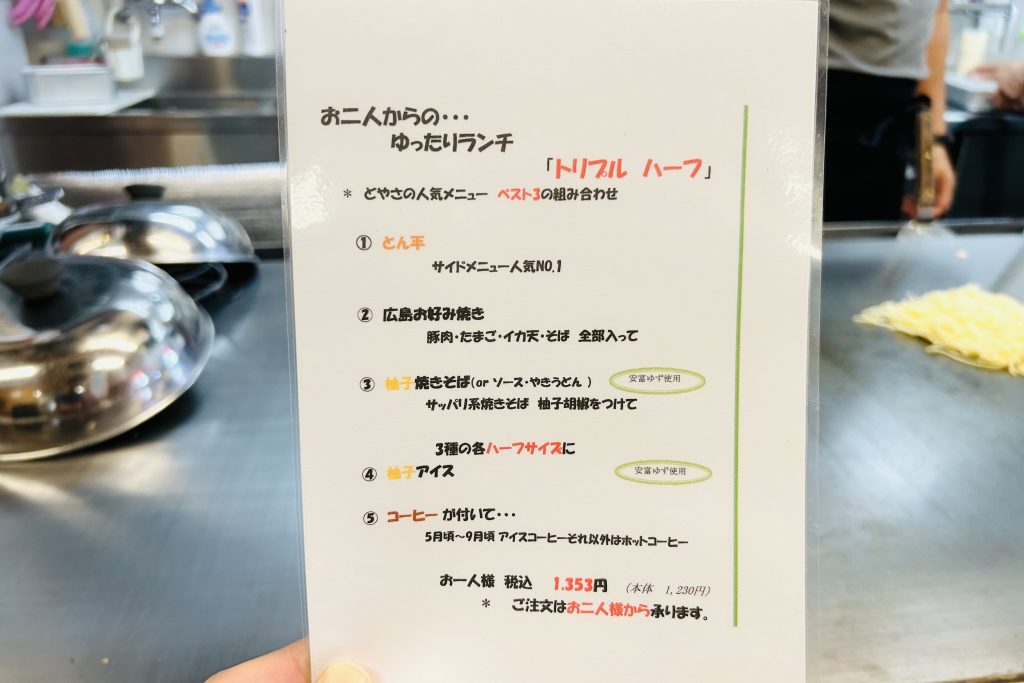 お二人からの・・・
ゆったりランチ
「トリプル ハーフ」
* どやさの人気メニュー ベスト3の組み合わせ
① とん平
サイドメニュー人気NO.1
② 広島お好み焼き
豚肉・たまご・イカ天・そば 全部入って
③ 柚子焼きそば(or ソース・やきうどん ) 安富ゆず使用
サッパリ系焼きそば 柚子胡椒をつけて
3種の各ハーフサイズに
④ 柚子アイス 安富ゆず使用
⑤ コーヒー が付いて・・・
5月頃~9月頃 アイスコーヒーそれ以外はホットコーヒー
お一人様 税込 1.353円 (本体 1,230円)
* ご注文はお二人様から承ります。